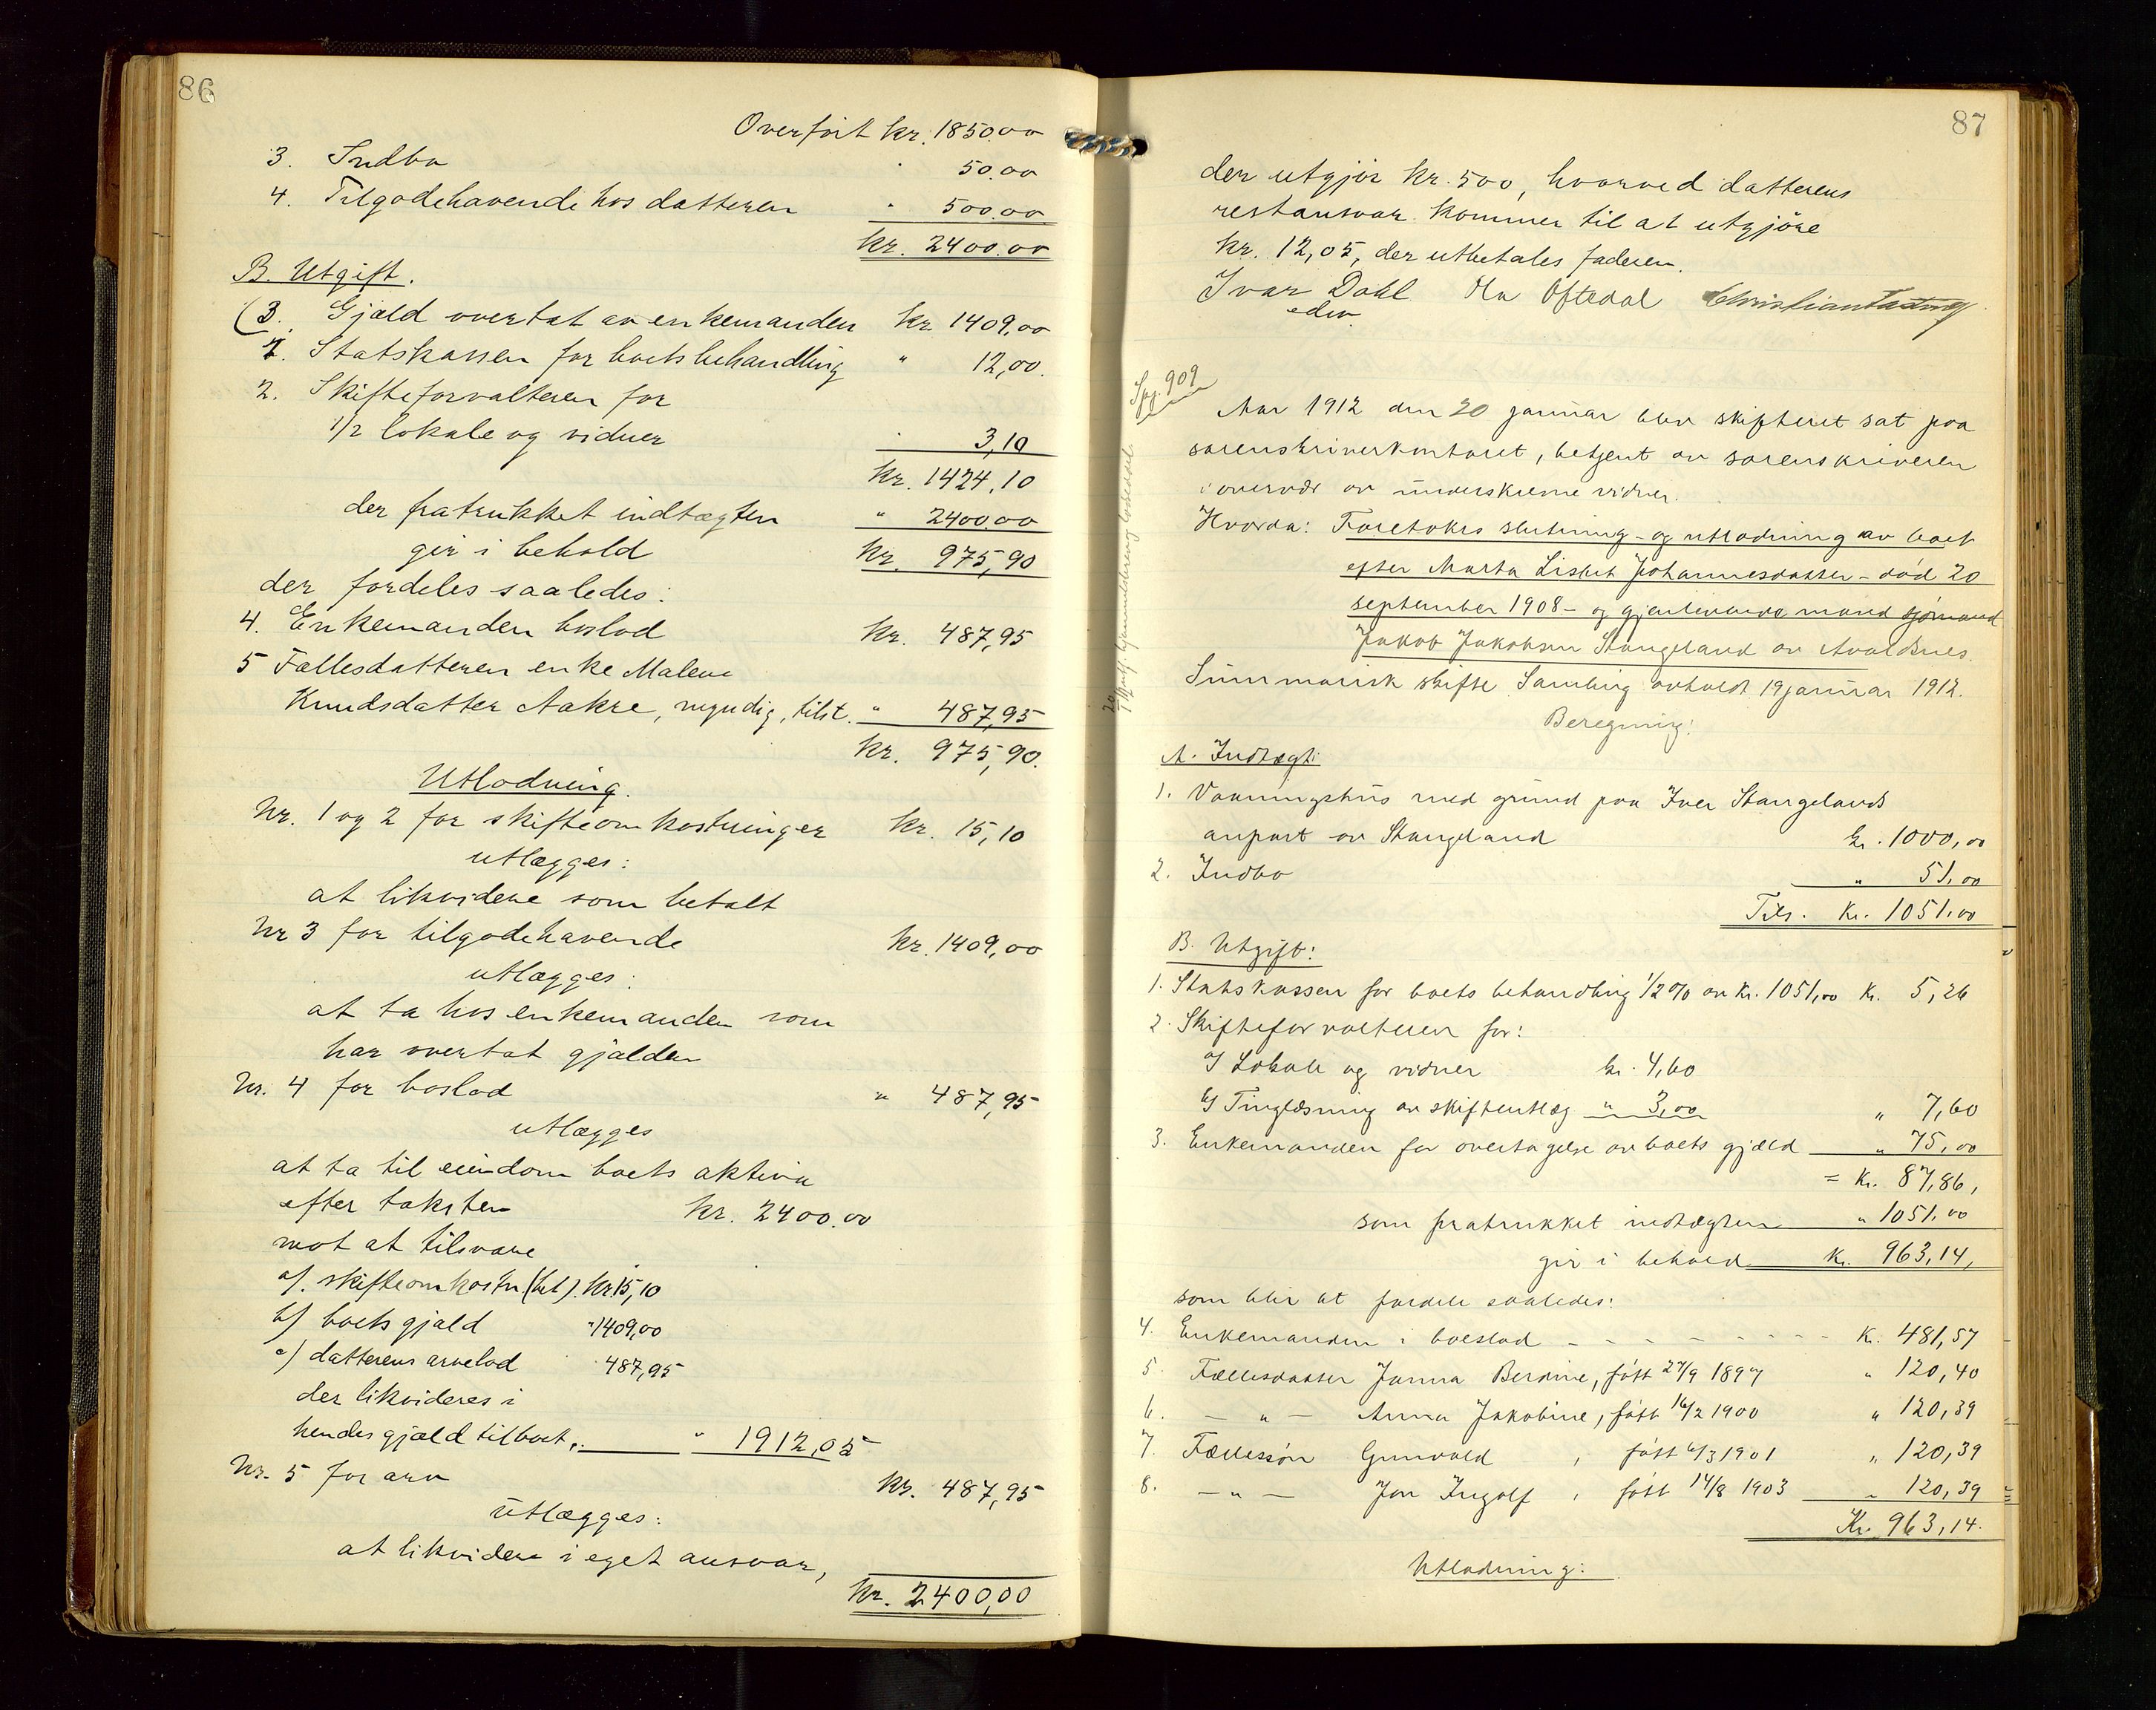 86
Overført kr. 1850.00
3. Indbo " 50.00
4. Tilgodehavende hos datteren " 500.00
kr. 2400.00
B. Utgift.
(3. Gjæld overtat av enkemanden kr. 1409,00
1. Statskassen for boets behandling " 12,00.
2. Skifteforvalteren for
1/2 lokale og vidner " 3,10
kr. 1424,10
der fratrukket indtægten " 2400.00
gir i behold kr. 975,90
der fordeles saaledes:
4. Enkemanden boslod kr. 487,95
5 Fællesdatteren enke Malene
Knudsdatter Aakre, myndig, tilst. " 487,95
kr. 975,90.
Utlodning.
Nr. 1 og 2 for skifteomkostninger kr. 15,10
utlægges:
at likvidere som betalt
Nr 3 for tilgodehavende kr. 1409,00
utlægges:
at ta hos enkemanden som
har overtat gjælden
Nr. 4 for boslod " 487,95
utlægges
at ta til eiendom boets aktiva
efter taksten kr. 2400.00
mot at tilsvare
a/. skifteomkostn (bet). kr 15,10
b/ boets gjæld " 1409,00
c/ datterens arvelod " 487,95
der likvideres i
hendes gjæld til boet, " 1912,05
Nr. 5 for arv kr. 487,95
utlægges:
at likvidere i eget ansvar,
kr. 2400,00
87
der utgjør kr. 500, hvorved datterens
restansvar kommer til at utgjøre
kr. 12,05, der utbetales faderen.
Ivar Dahl Ola Oftedal Christian
edsv.
909
Aar 1912 den 20 januar blev skifteret sat paa
sorenskriverkontoret, betjent av sorenskriveren
i overvær av underskrevne vidner.
Hvorda: Foretokes slutning- og utlodning av boet
efter Marta Lisbet Johannesdatter - død 20
september 1908 - og gjenlevende mand sjømand
Jakob Jakobsen Stangeland av Avaldsnes.
Summarisk skifte Samling avholdt 19 januar 1912.
Beregning:
A. Indtægt:
1. Vaaningshus med grund paa Iver Stangelands
anpart av Stangeland kr. 1000,00
2. Indbo " 51,00
Tils. Kr. 1051.00
B. Utgift:
1. Statskassen for boets behandling 1/2 % av Kr. 1051,00 Kr. 5,26
2. Skifteforvalteren for:
a/ Lokale og vidner kr. 4,60
b/ Tinglæsning av skifteutlæg " 3,00 " 7,60
3. Enkemanden for overtagelse av boets gjæld " 75,00
= Kr. 87,86,
som fratrukket indtægten " 1051.00
gir i behold Kr. 963,14,
som blir at fordele saaledes:
4. Enkemanden i boeslod - - - - - - - - Kr. 481,57
5. Fællesdatter Janna Berdine, født 27/9 1897 " 120,40
6. - " - Anna Jakobine, født 16/2 1900 " 120,39
7. Fællessøn Gunvald , født 6/3 1901 " 120,39
8. - " - Jon Ingolf , født 14/8 1903 " 120,39
Kr. 963,14.
Utlodning: